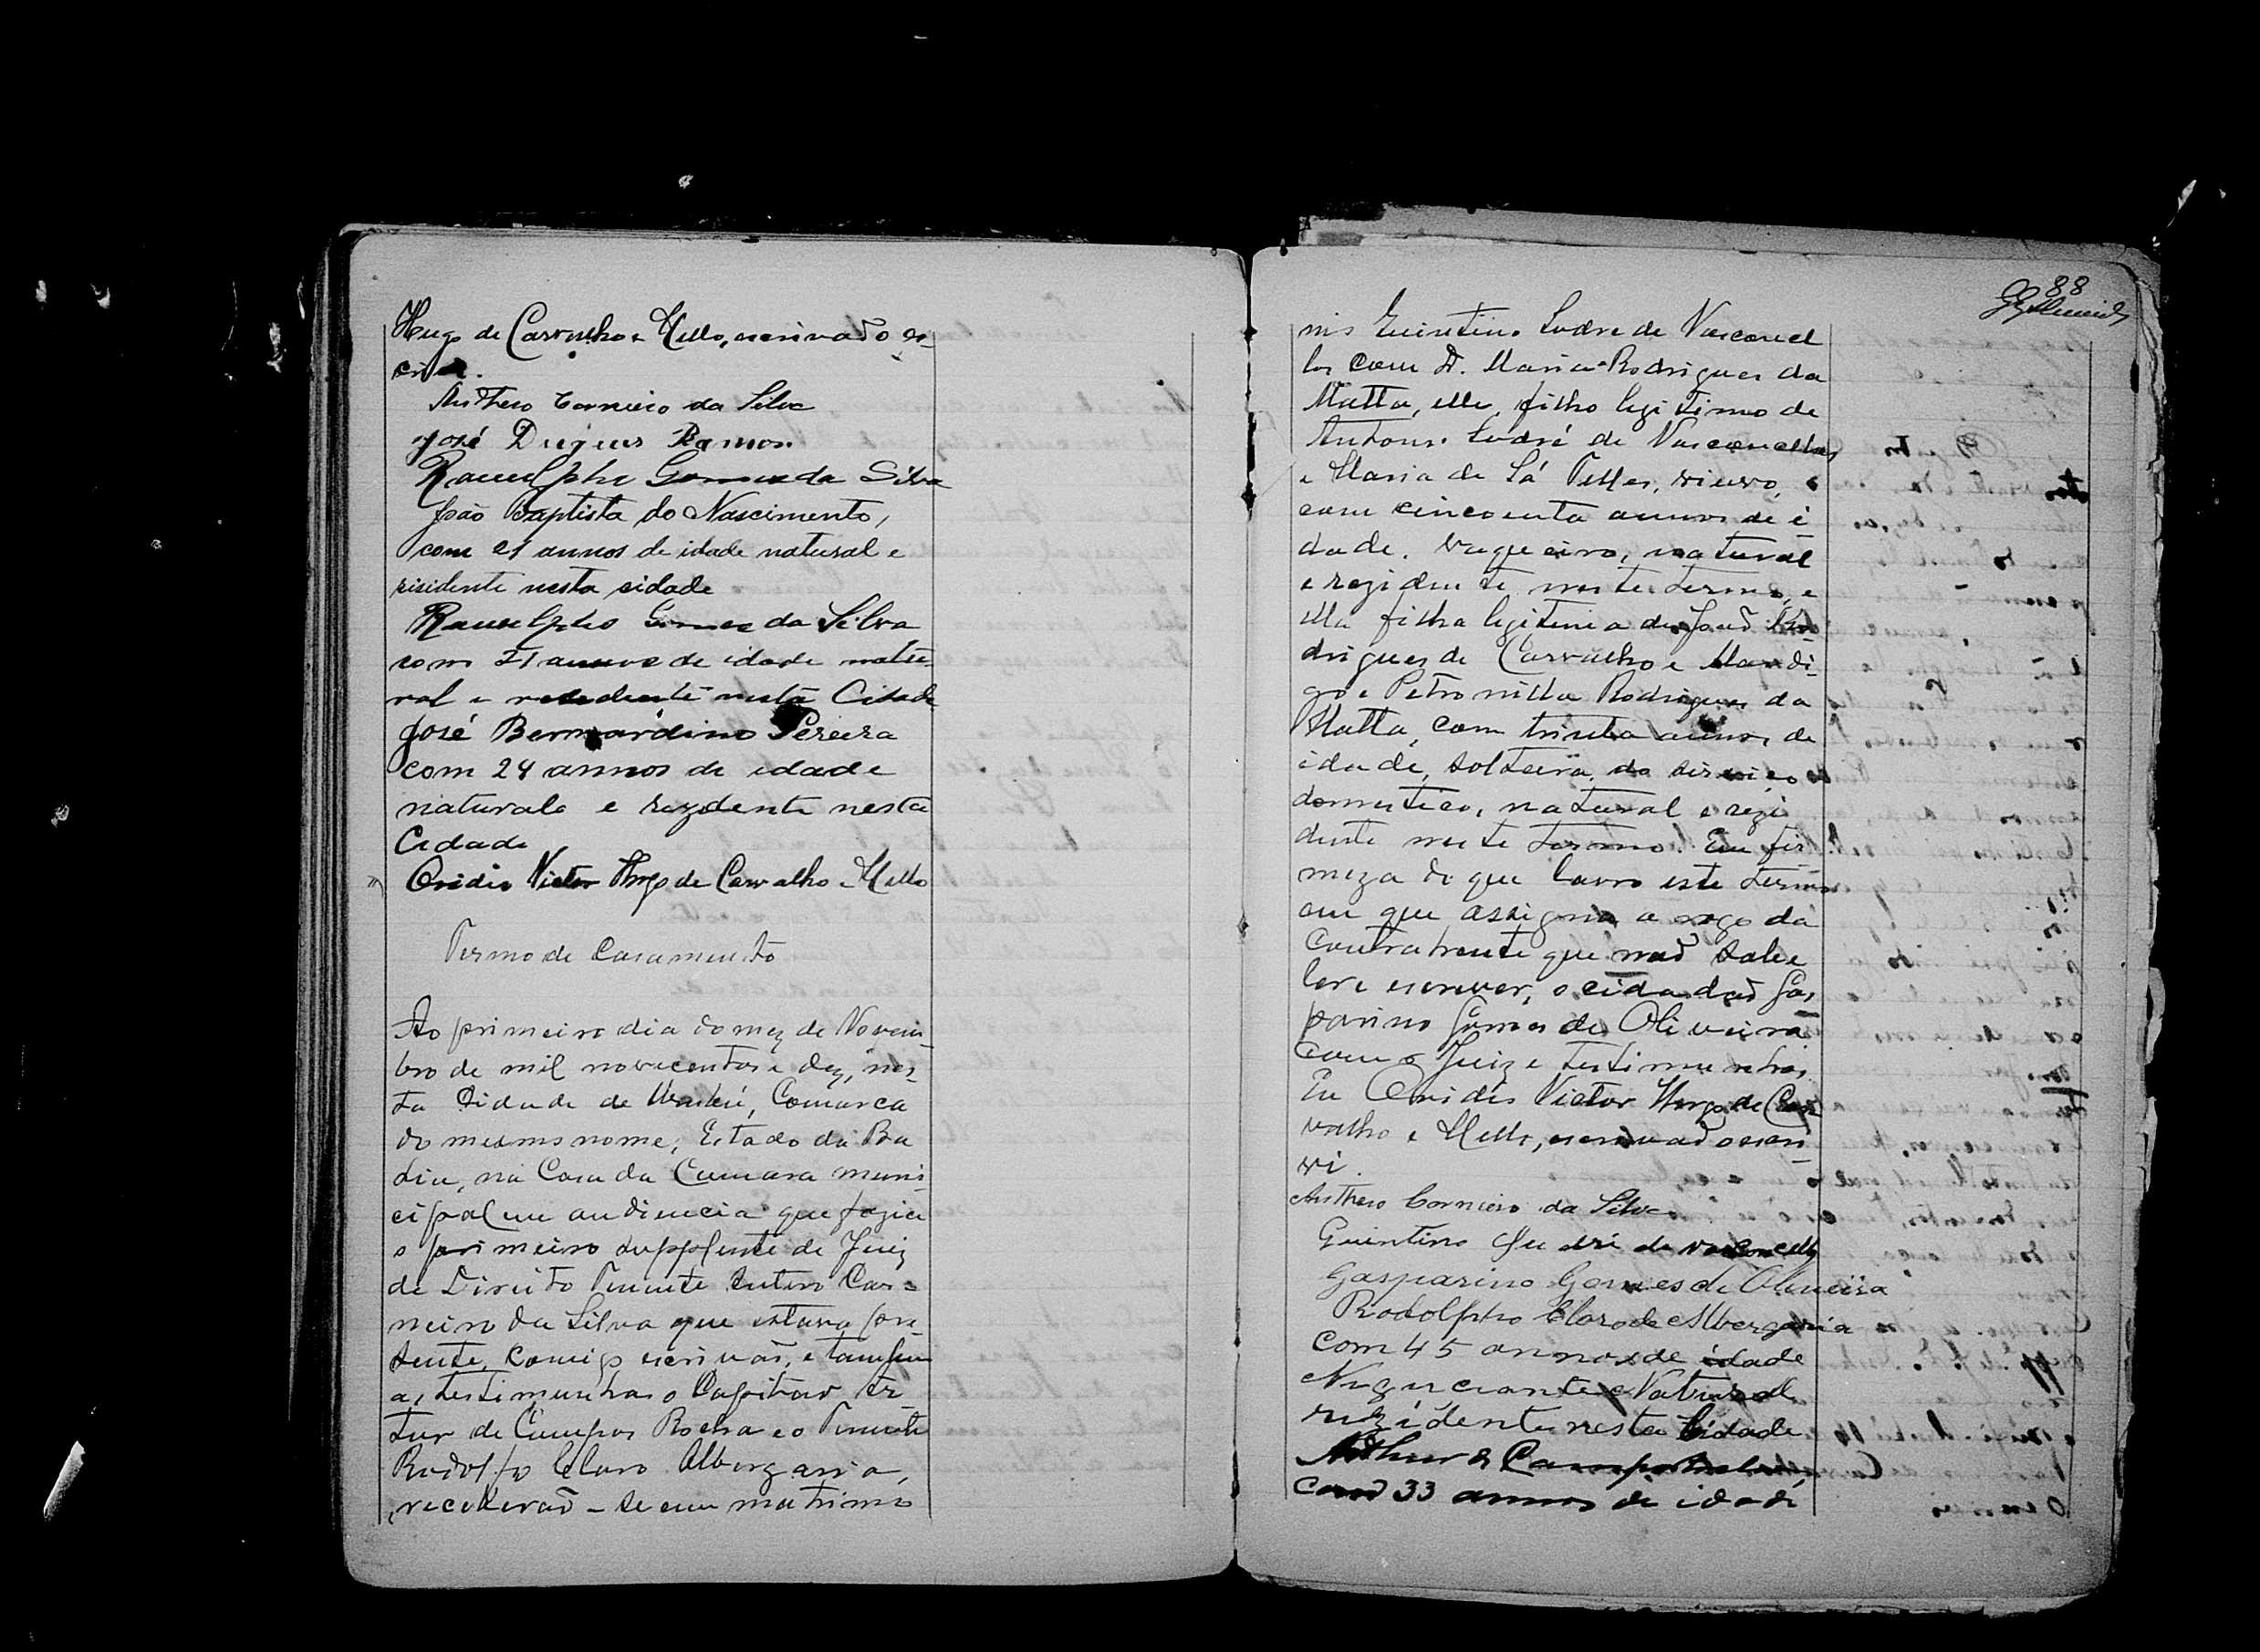 Hugo de Carvalho e Mello, escrivão es-
crevi.
Anthero Carneiro da Silva
José Ramos
Ranulpho Gomes da Silva
João Baptista do Nascimento,
com 21 annos de idade natural e
risidente nesta cidade
Ranulpho Gomes da Silva
com 21 annos de idade natu-
ral e residente nesta Cidade
José Bernardino Pereira
com 24 annos de idade
naturale e rezidente nesta
Cidade
Ovidio Victor Hugo de Carvalho e Mello
Termo de Casamento
Ao primeiro dia do mez de Novem-
bro de mil novecentos e dez, nes-
ta Cidade de Urubú, Comarca
do mesmo nome, Estado da Ba
hia, na Casa da Camara muni-
cipal em audiencia que fazia
o primeiro supplente de Juiz
de Direito Tenente Antero Car=
neiro da Silva que estava pre
sente, comigo escrivão, e tambem
as testimunhas o Capitão Ar
tur de Campos Rocha e o Tenente
Rodolfo Claro Albergaria,
receberão-se em matrimo
88
nio Quintino Sodre de Vasconcel
los com D. Maria Rodrigues da
Matta, elle, filho legitimo de
Antonio Sodré de Vasconcellos
e Maria de Sá Telles, viuvo,
com cincoenta annos de i
dade, vaqueiro, natural
e rezidente neste termo, e
ella filha legitima de João Ro-
drigues de Carvalho e
e Petronilla Rodrigues da
Matta, com trinta annos de
idade, solteira, do serviço
domestico, natural e rezi
dente neste termo. Em fir
meza do que lavro este termo
em que assigna a rogo da
contratrente que não sabe
ler e escrever, o cidadão Gas
parino Gomes de Oliveira
com o Juiz e testimunhas.
Eu Ovidio Victor Hugo de Car
valho e Mello, escrivão escre-
vi.
Anthero Carneiro da Silva
Quintino Sudré de Vasconcellos
Gasparino Gomes de Oliveira
Rodolpho Claro de Albergaria
com 45 annos de idade
Niguciante Natural
rizidente nesta Cidade
Arthur de Campos Rocha
com 33 annos de idade